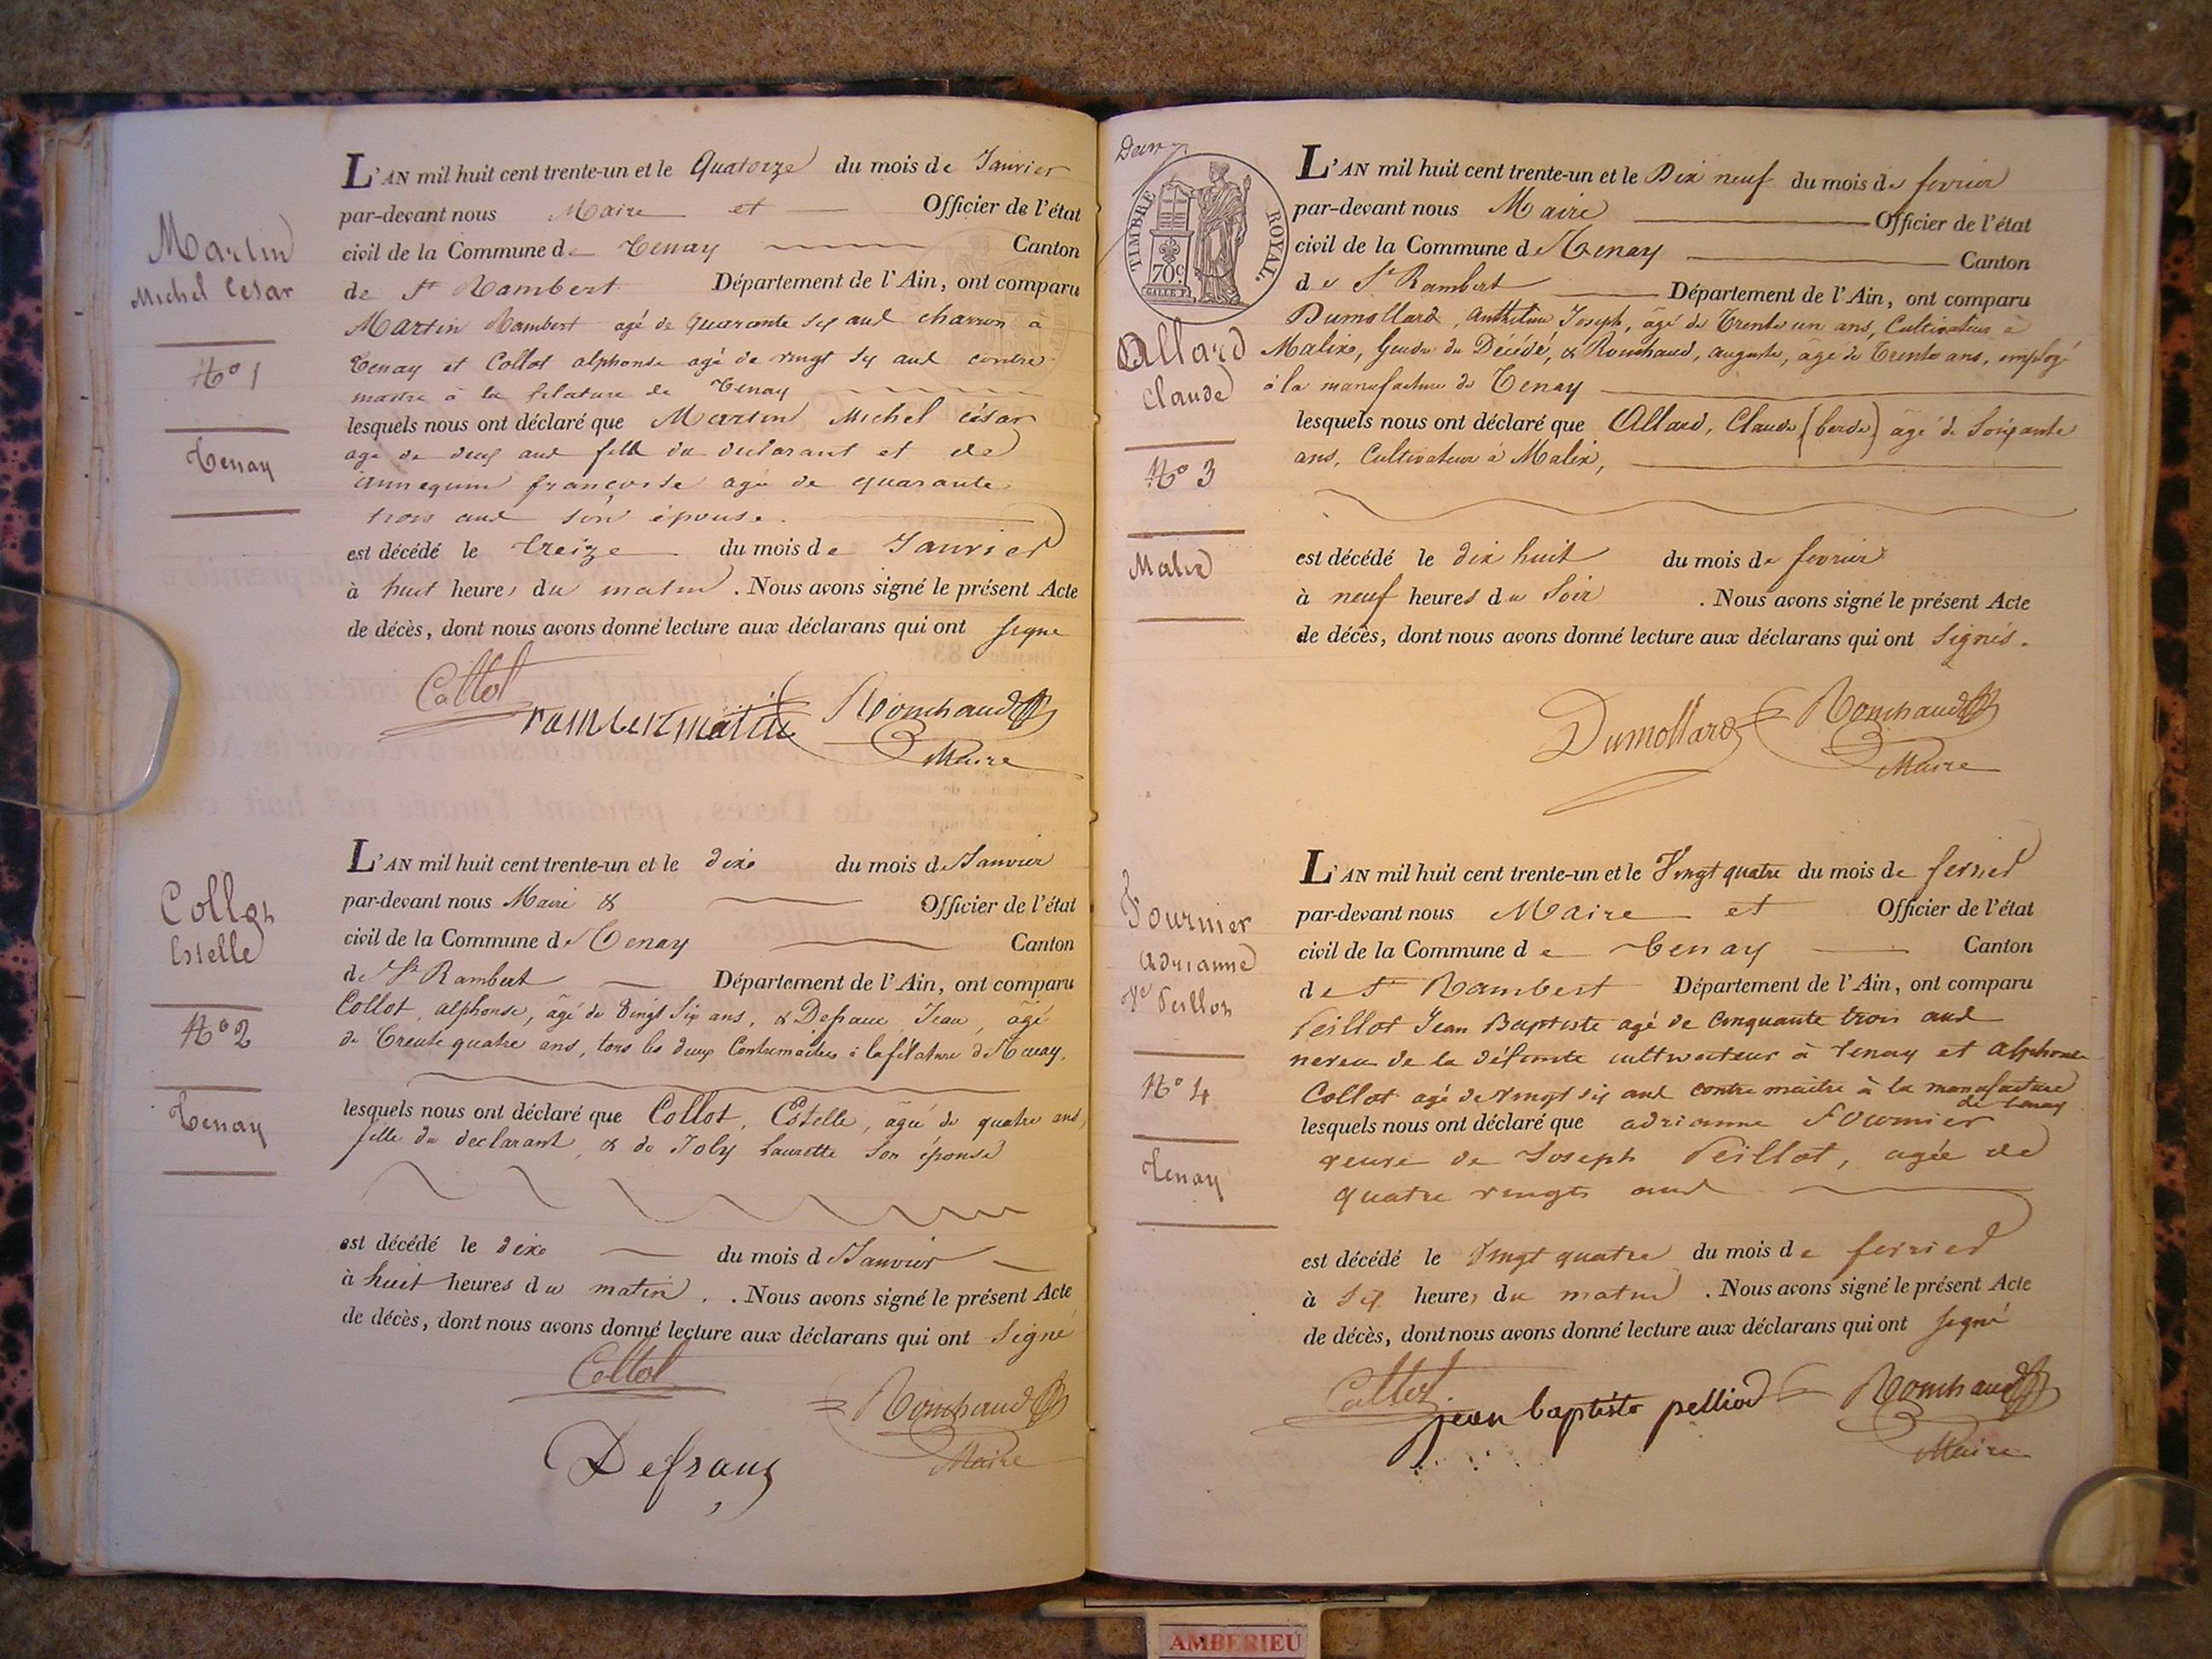 Martin
Michel Cesar
N° 1
Tenay
L'AN mil huit cent trente-un et le Quatorze du mois de Janvier
par-devant nous Maire et Officier de l'état
civil de la Commune de Tenay Canton
de St Rambert Département de l'Ain, ont comparu
Martin Rambert agé de quarante six ans charron à
Tenay et Collot alphonse agé de vingt six ans contre
maitre à la filature de Tenay
lesquels nous ont déclaré que Martin Michel césar
age de deux ans fils du declarant et de
françoise agée de quarante
trois ans son épouse.
est décédé le treize du mois de Janvier
à huit heures du matin. Nous avons signé le présent Acte
de décès, dont nous avons donné lecture aux déclarans qui ont signé
Collot
rambert martin
Romchaud
Maire
Collot
Estelle
N° 2
Tenay
L'AN mil huit cent trente-un et le dixe du mois de Janvier
par-devant nous Maire & Officier de l'état
civil de la Commune de Tenay Canton
de St Rambert Département de l'Ain, ont comparu
Collot, alphonse, âgé de Vingt Six ans, & Defranc Jean, âgé
de Trente quatre ans, tous les deux Contremaitres à la filature de Tenay.
lesquels nous ont déclaré que Collot, Estelle, agée de quatre ans,
fille du declarant, & de Joly Laurette Son épouse
est décédé le dixe du mois de Janvier
à huit heures du matin. . Nous avons signé le présent Acte
de décès, dont nous avons donné lecture aux déclarans qui ont Signé
Collot
Romchaud
Maire
Defranc
TIMBRE ROYAL.
70c
Allard
Claude
N° 3
Malix
L'AN mil huit cent trente-un et le Dix neuf du mois de fevrier
par-devant nous Maire Officier de l'état
civil de la Commune de Tenay Canton
de St Rambert Département de l'Ain, ont comparu
Dumollard, Anthelme Joseph, âgé de Trente un ans, Cultivateur à
Malix, Gendre du Décédé, & Romchaud, auguste, âgé de Trente ans, employé
à la manufacture de Tenay
lesquels nous ont déclaré que Allard, Claude agé de Soixante
ans, Cultivateur à Malix,
est décédé le dix huit du mois de fevrier
à neuf heures du Soir . Nous avons signé le présent Acte
de décès, dont nous avons donné lecture aux déclarans qui ont Signés.
Dumollard
Romchaud
Maire
Fournier
adrianne
Ve Peillot
N° 4
Tenay
L'AN mil huit cent trente-un et le Vingt quatre du mois de fevrier
par-devant nous Maire et Officier de l'état
civil de la Commune de Tenay Canton
de St Rambert Département de l'Ain, ont comparu
Peillot Jean Baptiste agé de Cinquante trois ans
neveu de la défunte cultivateur à Tenay et alphonse
Collot agé de vingt six ans contre maitre à la manufacture
de Tenay
lesquels nous ont déclaré que adrianne Fournier
veuve de Joseph Peillot, agée de
quatre vingts ans
est décédé le Vingt quatre du mois de fevrier
à six heures du matin . Nous avons signé le présent Acte
de décès, dont nous avons donné lecture aux déclarans qui ont signé
Collot
jean baptiste pelliod
Romchaud
Maire
AMBERIEU